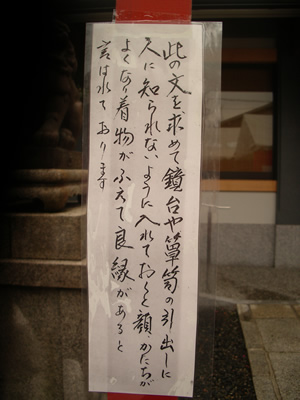 此の文を求めて鏡台や箪笥の引出しに
人に知られないように入れておくと顔かたちが
よくなり着物がふえて良縁があると
言はれております